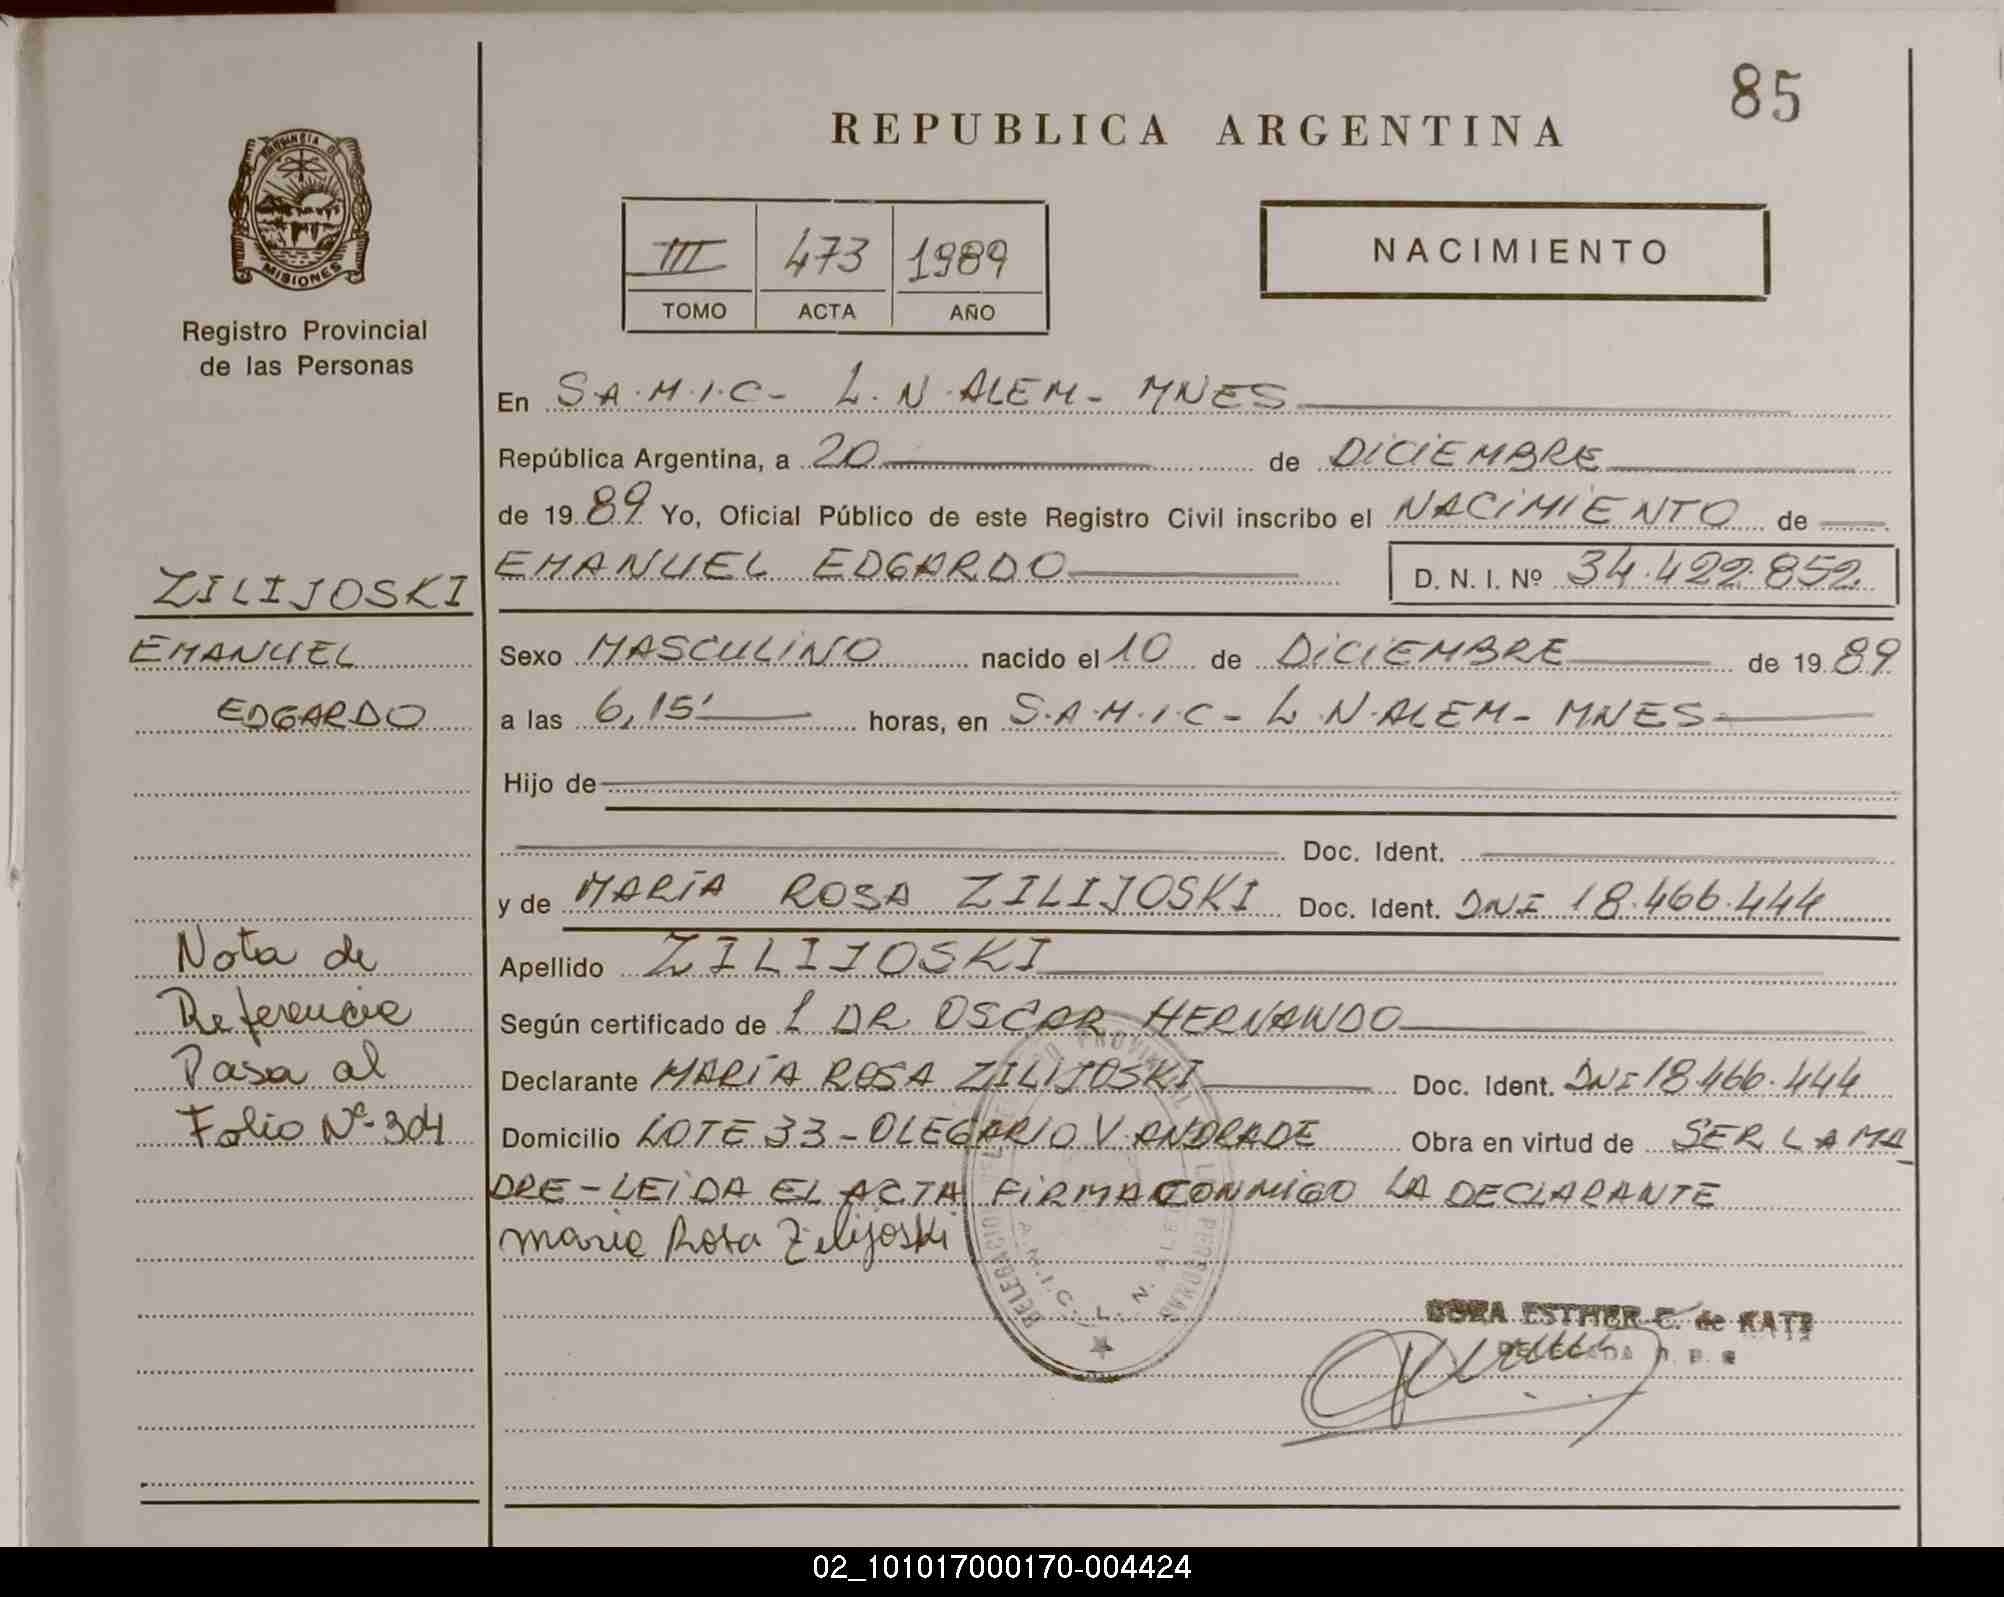 85
REPUBLICA ARGENTINA
PROVINCIA DE
MISIONES
Registro Provincial
de las Personas
III 473 1989
TOMO ACTA AÑO
NACIMIENTO
En S.A.M.I.C- L.N.ALEM- MNES
República Argentina, a 20 de DICIEMBRE
de 1989 Yo, Oficial Público de este Registro Civil inscribo el NACIMIENTO de
EMANUEL EDGARDO D. N. I. Nº 34.422.852
ZILIJOSKI
EMANUEL
EDGARDO
Sexo MASCULINO nacido el 10 de DICIEMBRE de 1989
a las 6,15' horas, en S.A.M.I.C- L.N.ALEM- MNES
Hijo de
Doc. Ident.
y de MARÍA ROSA ZILIJOSKI Doc. Ident. DNI 18.466.444
Apellido ZILIJOSKI
Según certificado de 1 DR OSCAR HERNANDO
Declarante MARÍA ROSA ZILIJOSKI Doc. Ident. DNI 18.466.444
Domicilio LOTE 33-OLEGARIO V. ANDRADE Obra en virtud de SER LA MA
DRE-LEIDA EL ACTA FIRMA CONMIGO LA DECLARANTE
Maria Rosa Zilijoski
Nota de
Referencia
Pasa al
Folio Nº 304
ESTHER C. de KATZ
DELEGADA
02_101017000170-004424